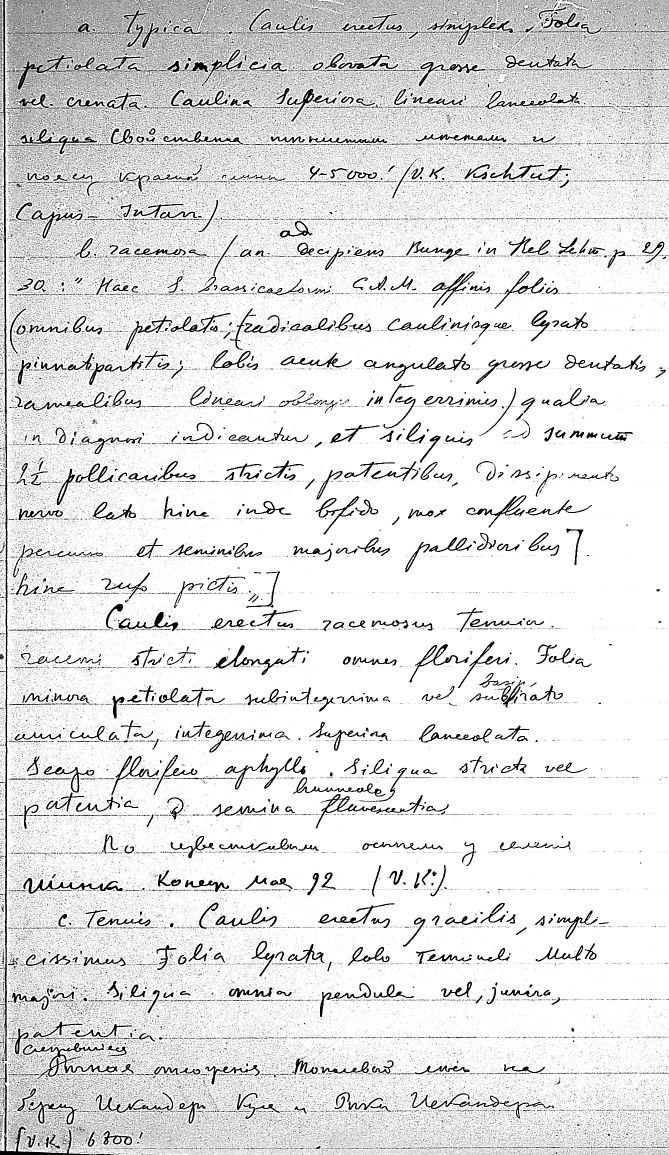 a. typica. Caulis erectus, simplex. Folia
petiolata simplicia obovata grosse dentata
vel crenata. Caulina Superiora lineari lanceolata
siliqua Свойственна и
поясу 4-5000! (V.K. Kschtut;
Capus- Intarr.)
b. racemosa (an. ad decipiens Bunge in Rel Lehm. p 29.
30. : " Haec S. brassicaeformi C.A.M. affinis foliis
(omnibus petiolatis; (radicalibus caulinisque lyrato
pinnatipartitis; lobis acute angulato grosse dentatis,
ramealibus lineari oblongis integerrimis.) qualia
in diagnosi indicantur, et siliquis ad summum
2 1/2 pollicaribus strictis, patentibus, dissipimento
nervo lato hinc inde bifido, mox confluente
percurso et seminibus majoribus pallidioribus].
hinc rufo pictis.,,]
Caulis erectus racemosus tenuior.
racemi stricti elongati omnes floriferi. Folia
minora petiolata subintegerrima vel basin sublirato
auriculata, integerrima. Superina lanceolata.
Scapo florifero aphyllo. Siliqua stricta vel
patentia, semina flavescentia,
По известковым осыпям у селения
Конец мая 92 (V.K.).
c. Tenuis. Caulis erectus gracilis, simpli-
cissimus Folia lyrata, lobo terminali multo
majori. Siliqua omnia pendula vel, juniora,
patentia.
Тополевый на
берегу Искандер Куля и Искандера
(V.K.) 6800!